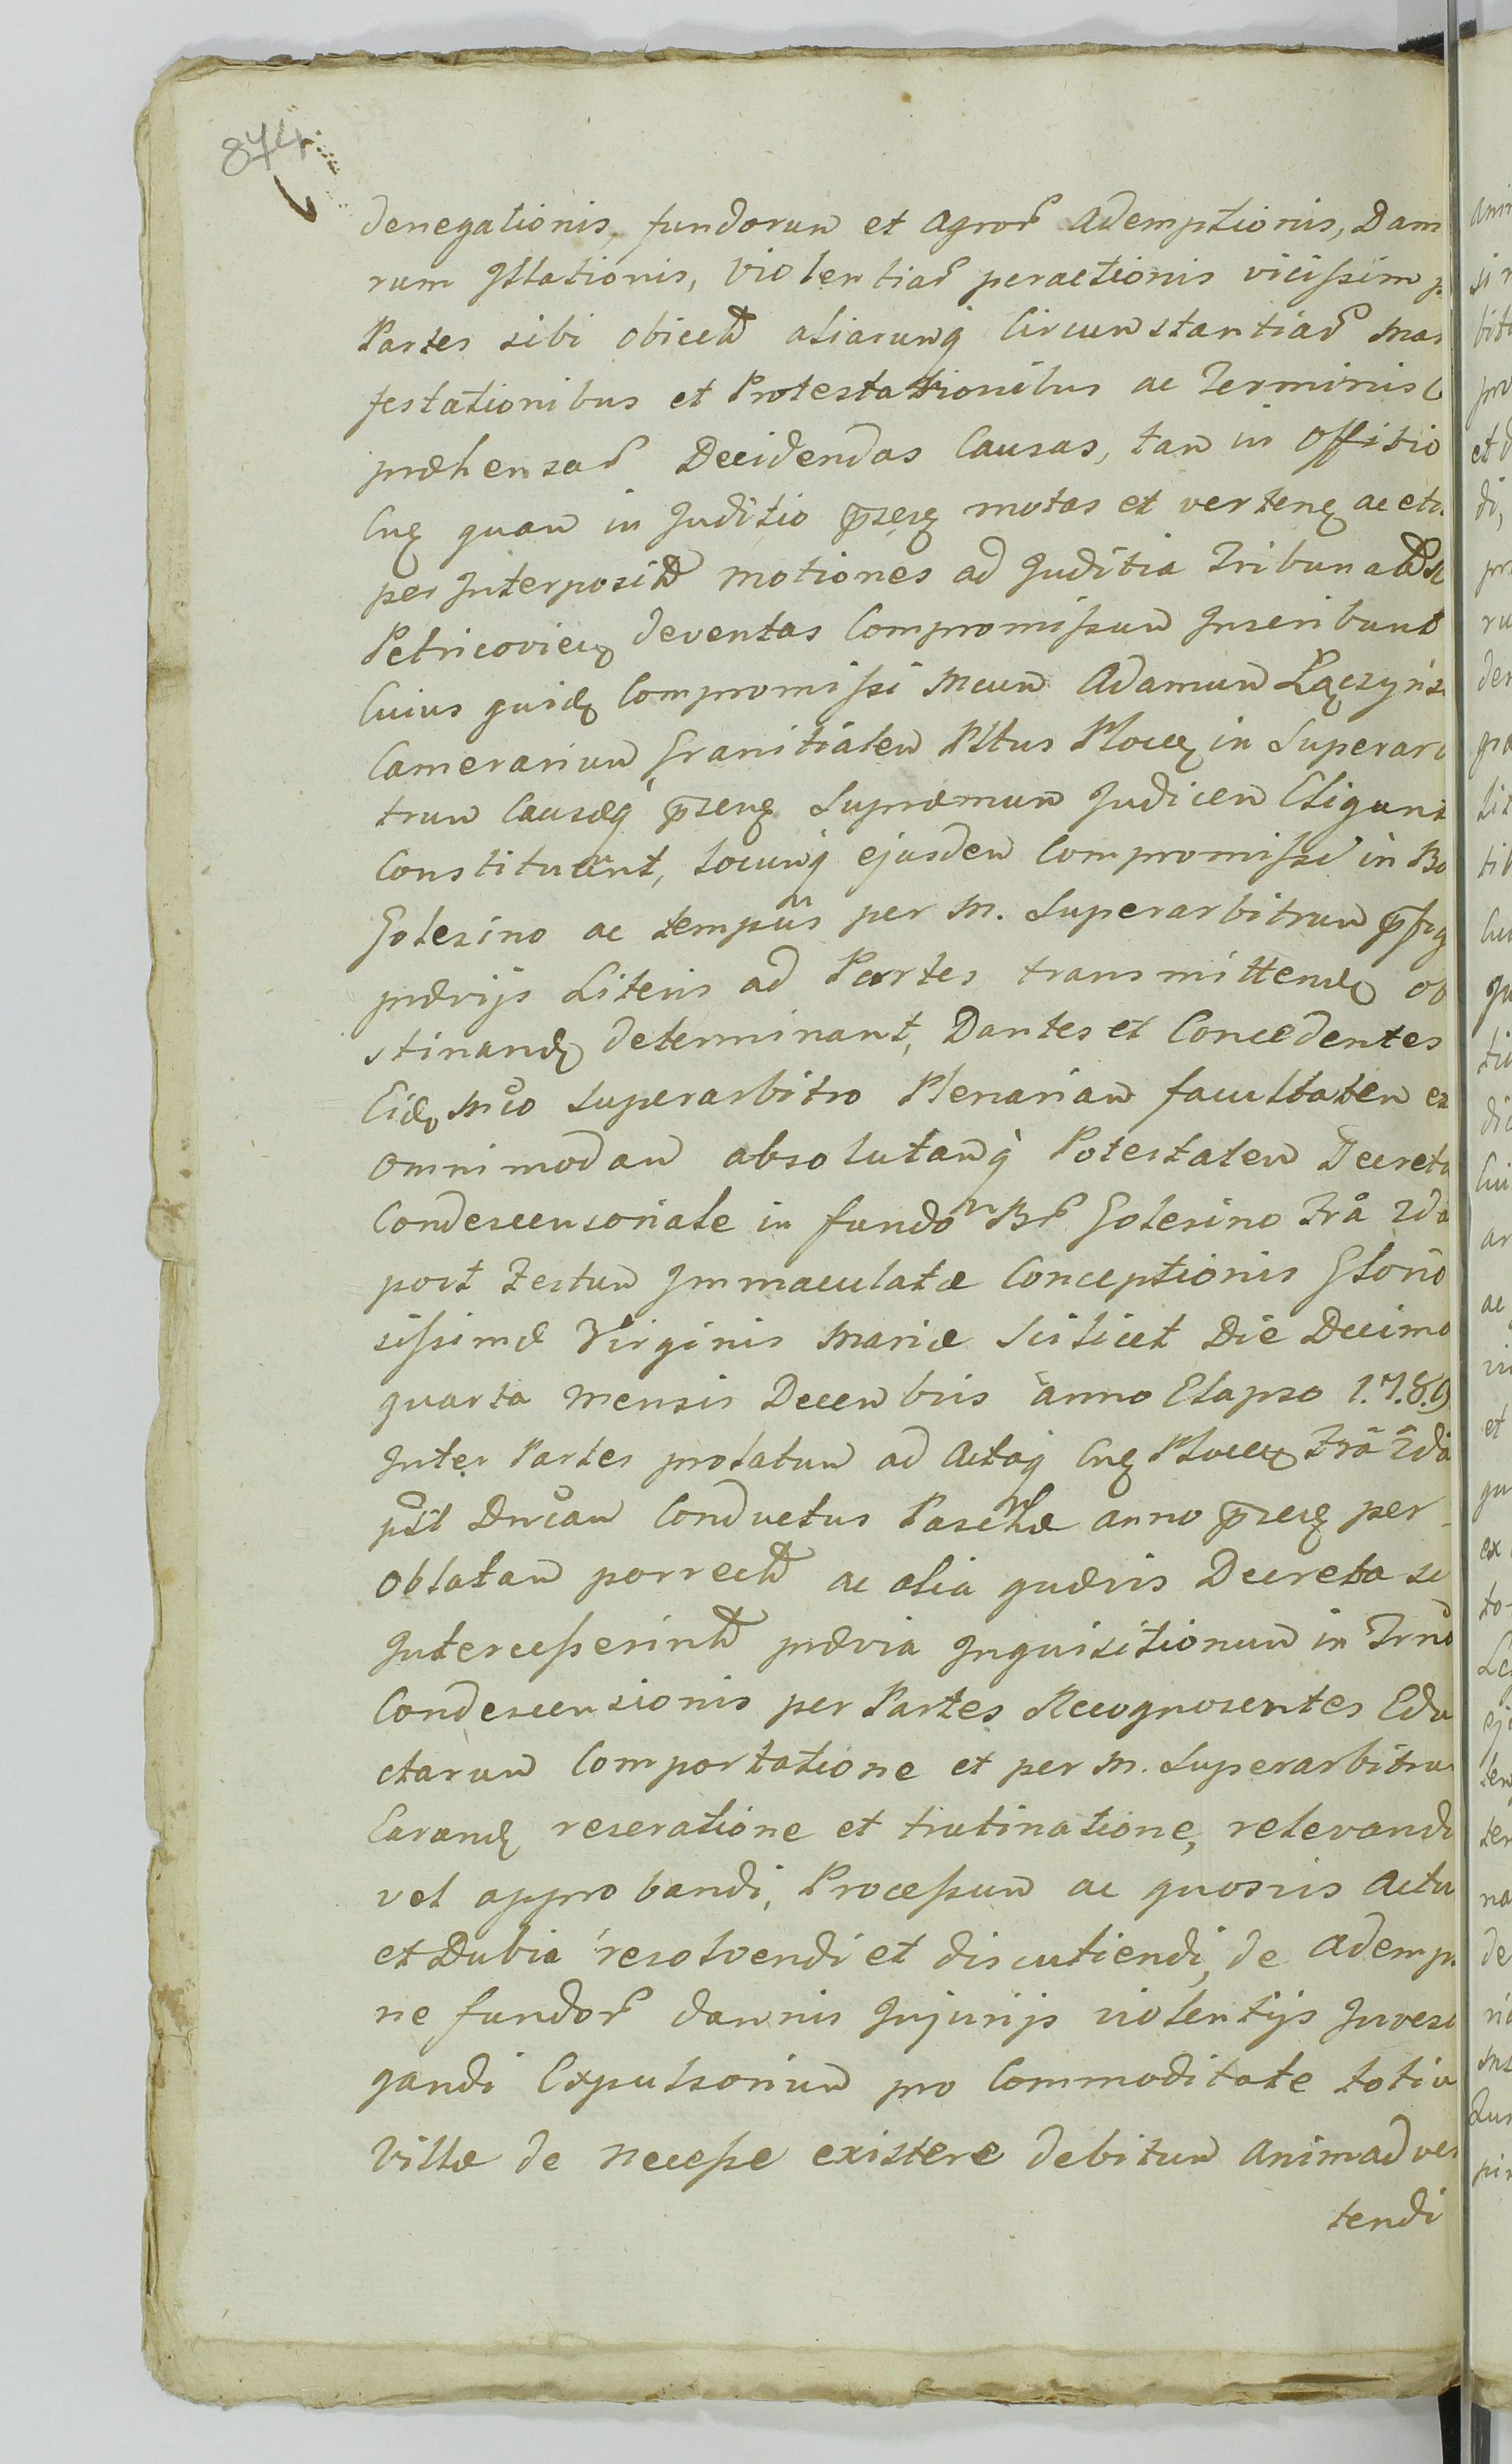 874
denegationis, fundorum et agror Ademptionis, Dam
rum Jllationis, Violentiar peractionis vicissim p
Partes sibi obicett aliarumq Circumstantiar Ma
festationibus et Protestationibus ac Terminis C
præhensar Decidendas Causas, tam in Offitio
Cnq quam in Juditio prseq motas et verteng ac et
per Interposit motiones ad Juditia Tribunal
Petricovien deventas Compromissum Inscribunt
Cuius quidq Compromissi Mcum Adamum Łączyńs
Camerarium Granitialem Pltus Plocq in Superar
trum Causæq prsenq Supræmum Judicem Eligunt
Constituunt, locumq ejusdem Compromissi in Bo
Golesino ac tempus per M. Superarbitrum prfig
prævijs Literis ad Partes transmittend ob
stinand determinant, Dantes et Concedentes
Eidq Mco Superarbitro Plenariam facultatem e
omnimodam absolutamq Potestatem Decret
Condescensoriale in fundo Br Golesino fra 2da
post Festum Immaculatæ Conceptionis Glorio
sissimæ Virginis Mariæ Scilicet Die Decima
quarta Mensis Decembris anno Elapso 1.7.8.9
Inter Partes prolatum ad Actaq Cnq Plocen fra 2da
pst Dncam Conductus Paschæ anno prsenq per
Oblatam porrect ac alia quævis Decreta si
Intercesserint prævia Inquisitionum in Trno
Condescensionis per Partes Recognoscentes Edu
ctarum Comportatione et per M. Superarbitru
Earundq reseratione et trutinatione, relevandi
vel approbandi, Processum ac quosvis Actu
et Dubia resolvendi et discutiendi, de Ademp
ne fundor damnis Injurijs violentijs Invest
gandi Expulsorium pro Commoditate totiu
Villæ de necesse existere debitum animadver
tendi